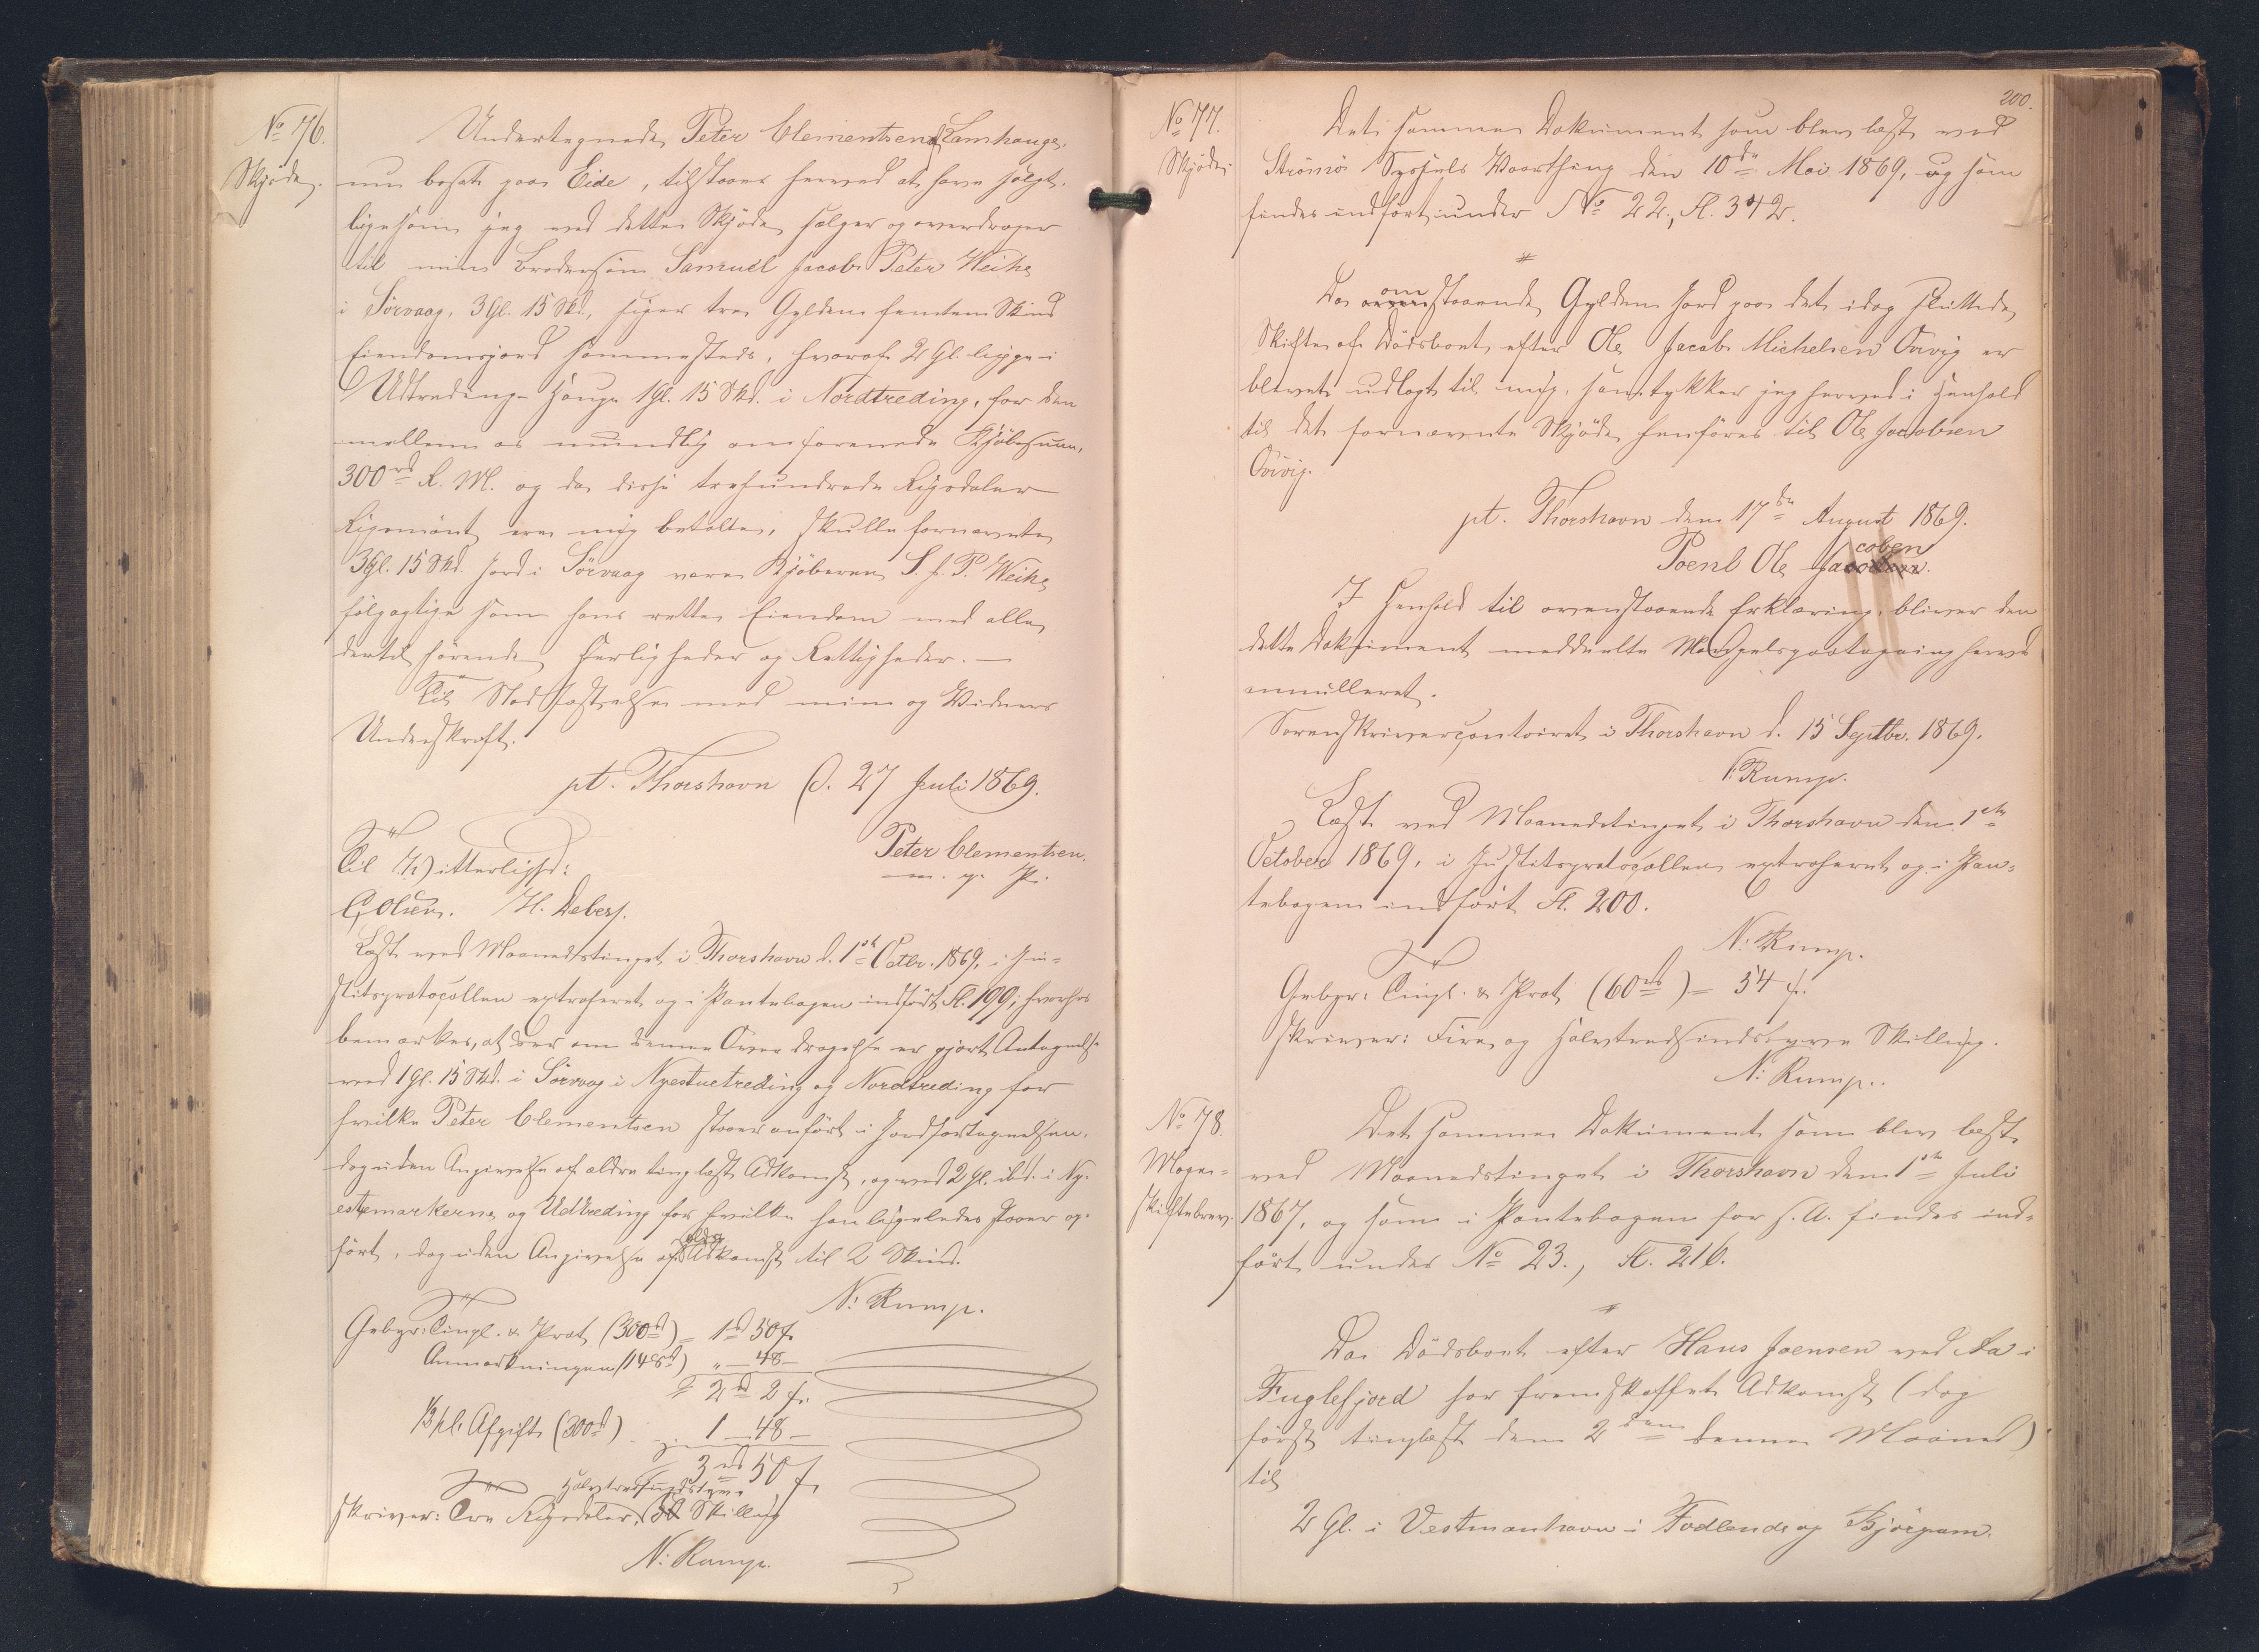 No 76.
Skjøde.
Undertegnede Peter Clementsen af Lamhauge,
nu bosat paa Eide, tilstaaer herved at have solgt,
ligesom jeg ved dette Skjøde sælger og overdrager
til min Brodersøn Samuel Jacob Peter Weihe
i Sørvaag, 3 Gl. 15 Skd., siger tre Gylden femten Skind
Eiendomsjord sammesteds, hvoraf 2 Gl. ligge i
Udtreding Hauge 1 Gl. 15 Skd. i Nordtreding, for den
mellem os mundtlig omforenede Kjøbesum,
300 rd R. M. og da disse trehundrede Rigsdaler
Rigsmønt ere mig betalte, skulle fornævnte
3 Gl. 15 Skd. Jord i Sörvaag være Kjøberen S. J. P. Weihe
følgagtige som hans rette Eiendom med alle
dertil hørende Herligheder og Rettigheder. —
Til Stadfæstelse med min og Vidners
Underskrift.
pt. Thorshavn d. 27 Juli 1869.
Peter Clementsen.
m. p. P.
Til Vitterlighed:
G. Olsen. H. Debes.
Læst ved Maanedstinget i Thorshavn d. 1ste Octbr. 1869, i Ju-
stitsprotocollen extraheret og i Pantebogen indført Fl. 199; hvorhos
bemærkes, at der om denne Overdragelse er gjort Antegnelse
ved 1 Gl. 15 Skd. i Sörvaag i Nyestuetreding og Nordtreding for
hvilke Peter Clementsen staaer anført i Jordfortegnelsen,
dog uden Angivelse af ældre tinglæst Adkomst, og ved 2 Gl. ibd. i Ny-
estemarkerne og Udtreding for hvilke han ligeledes staaer op-
ført, dog uden Angivelse af ældre Adkomst til 2 Skind.
N: Rump.
Gebyr: Tingl. & Prot. (300 rd) = 1 rd 50 f.
Anmærkningen (148 d) " — 48 —
2 rd 2 f.
½ pCt. Afgift (300 d) 1 — 48 —
3 rd 50 f
halvtredsindstyve
skriver: Tre Rigsdaler, 50 Skilling
N: Rump.
200.
No 77.
Skjøde
Det samme Dokument som blev læst ved
Strömö Syssels Vaarthing den 10de Mai 1869, og som
findes indført under No 22, Fl. 342.
Da omstaaende Gylden Jord paa det idag sluttede
Skifte af Dödsboet efter Ole Jacob Michelsen Qvivig er
blevet udlagt til mig, samtykker jeg herved i Henhold
til det fornævnte Skjøde henføres til Ole Jacobsen
Qvivig.
pt. Thorshavn den 17de August 1869.
Poul Ole Jacobsen
I Henhold til ovenstaaende Erklæring, bliver den
dette Dokument meddeelte Mangelspaategning herved
annulleret.
Sorenskrivercontoiret i Thorshavn d. 15 Septbr. 1869.
N: Rump.
Læst ved Maanedstinget i Thorshavn den 1ste
October 1869, i Justitsprotocollen extraheret og i Pan-
tebogen indført Fl. 200.
N: Rump.
Gebyr: Tingl. & Prot. (60 rd) = 54 f.
skriver: Fire og halvtredsindstyve Skilling.
N: Rump.
No 78.
Mageskiftebrev.
Det samme Dokument som blev læst
ved Maanedstinget i Thorshavn den 1ste Juli
1867, og som i Pantebogen for s. A. findes ind-
ført under No 23., Fl. 216.
Da Dödsboet efter Hans Joensen ved Aa i
Fuglefjord har fremskaffet Adkomst (dog
først tinglæst den 2den denne Maaned)
til
2 Gl. i Vestmanhavn i Fodlende og Bjørgum.